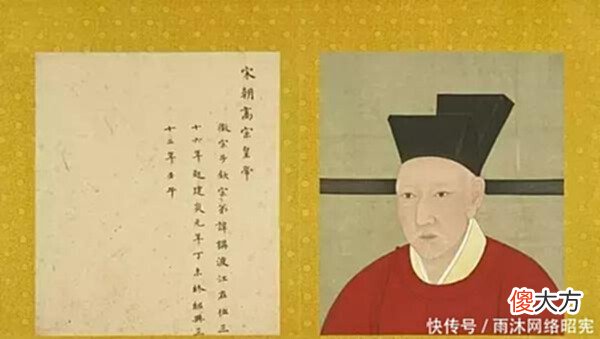 宋朝高宗皇帝
徽宗子欽宗弟諱構渡江在位三
十六年起建炎元年丁未終紹興三
十二年壬午
傻大方
快传号／雨沐网络昭宪